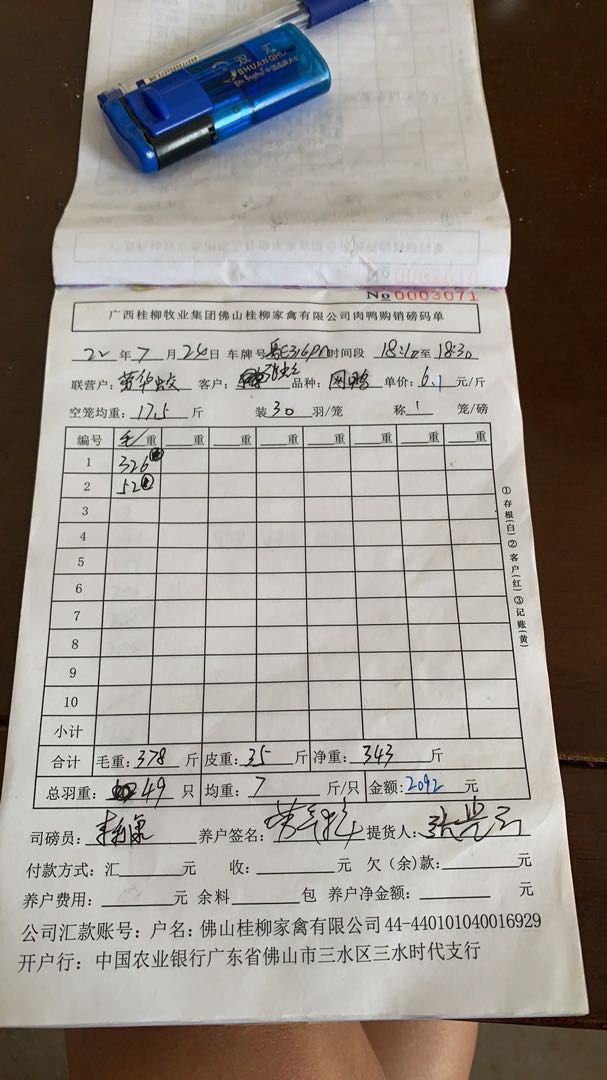 双虎
SHUANGHU
№ 0003071
广西桂柳牧业集团佛山桂柳家禽有限公司肉鸭购销磅码单
22 年 7 月 24 日 车牌号 时间段 18:10 至 18:30
联营户: 劳华蛟 客户: 品种: 肉鸭 单价: 6.1 元/斤
空笼均重: 17.5 斤 装 30 羽/笼 称 1 笼/磅
编号 毛 重 重 重 重 重 重 重
1 326
2 52
3
4
5
6
7
8
9
10
小计
合计 毛重: 378 斤 皮重: 35 斤 净重: 343 斤
总羽重: 49 只 均重: 7 斤/只 金额: 2092 元
司磅员: 养户签名: 提货人:
付款方式: 汇 元 收: 元 欠(余)款: 元
养户费用: 元 余料 包 养户净金额: 元
公司汇款账号: 户名: 佛山桂柳家禽有限公司 44-440101040016929
开户行: 中国农业银行广东省佛山市三水区三水时代支行
①存根(白)②客户(红)③记账(黄)